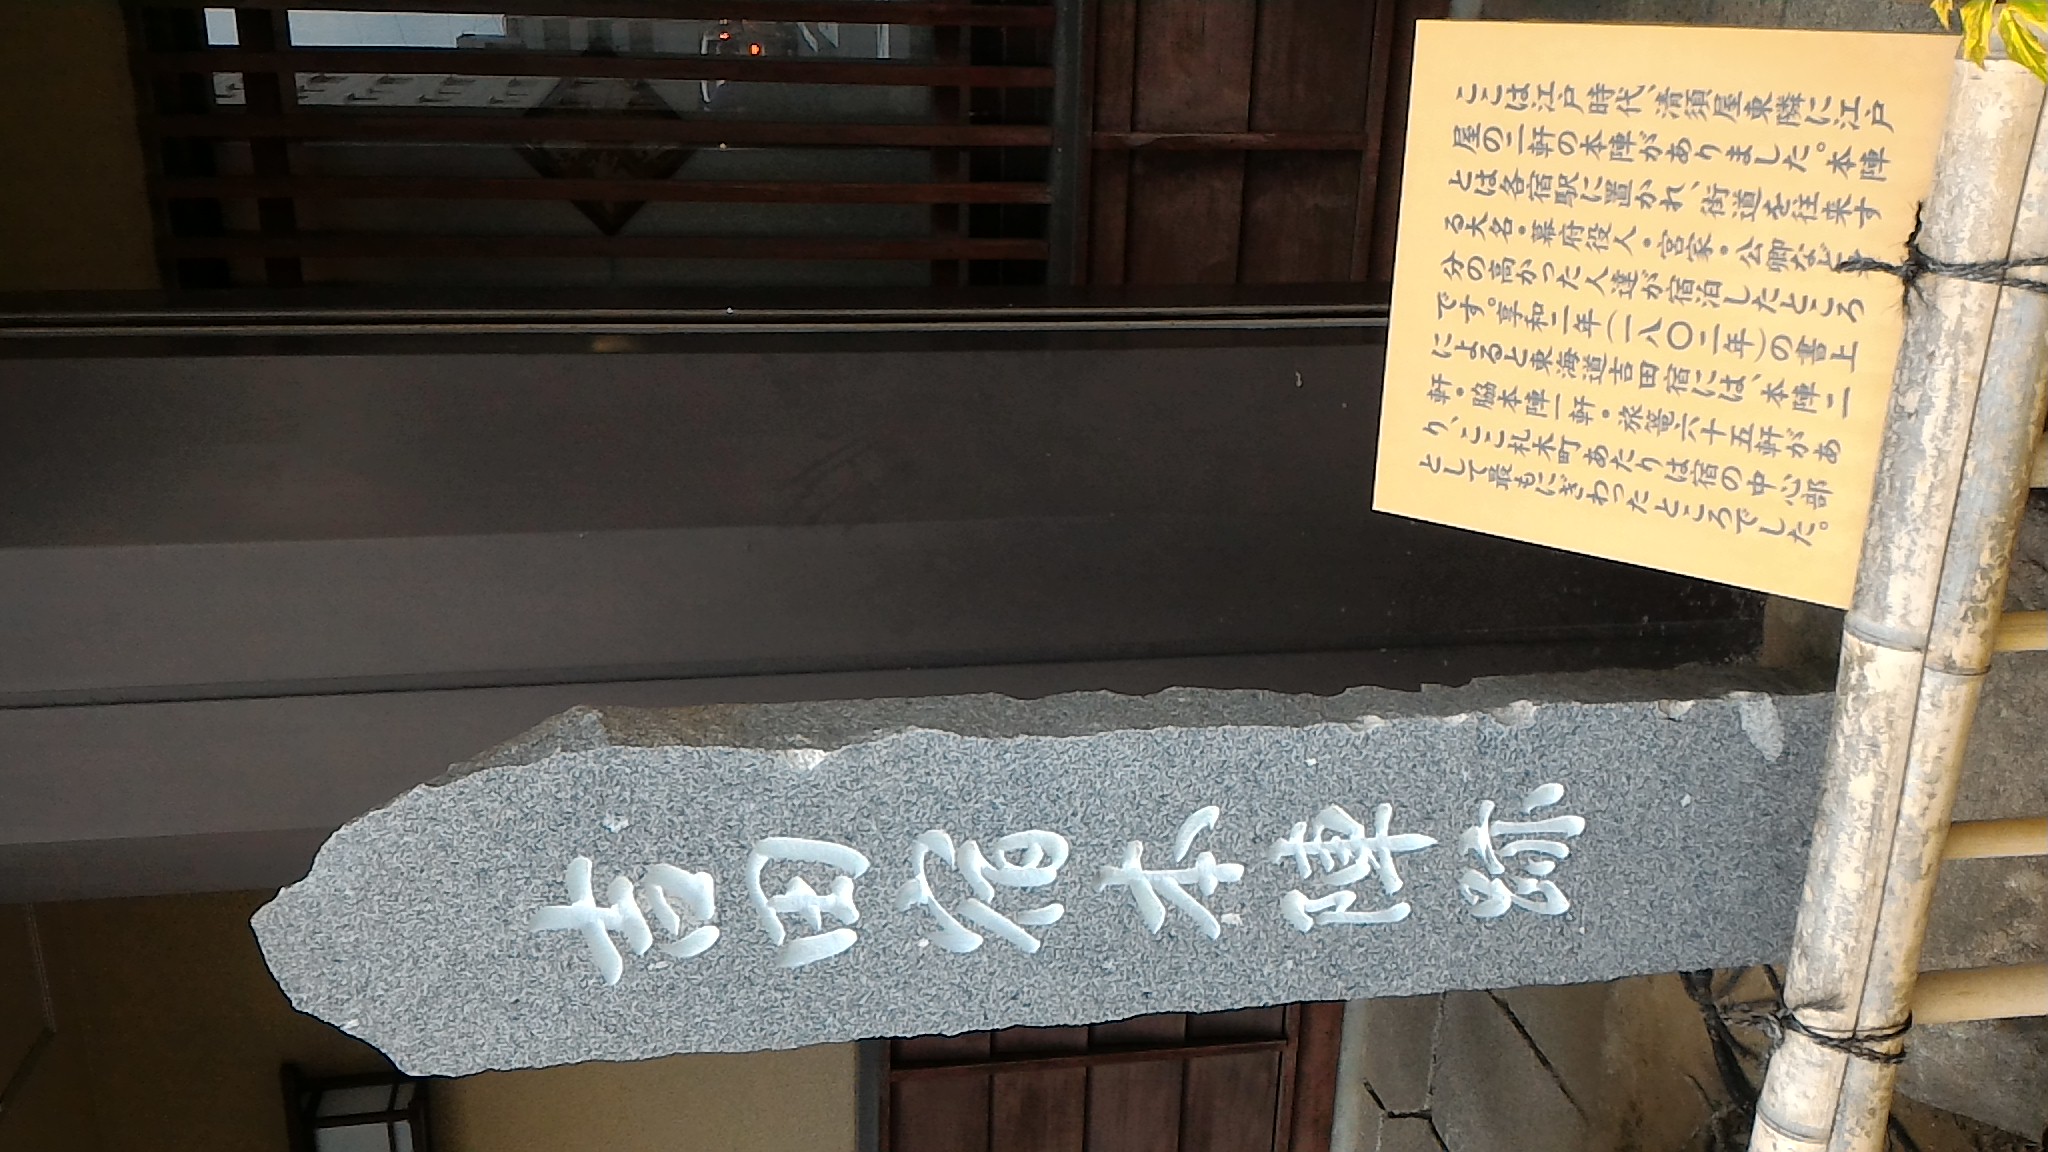 ここは江戸時代、清須屋東隣に江戸
屋の二軒の本陣がありました。本陣
とは各宿駅に置かれ、街道を往来す
る大名・幕府役人・宮家・公卿など身
分の高かった人達が宿泊したところ
です。享和二年(一八〇二年)の書上
によると東海道吉田宿には、本陣二
軒・脇本陣一軒・旅篭六十五軒があ
り、ここ札木町あたりは宿の中心部
として最もにぎわったところでした。
吉田宿本陣跡